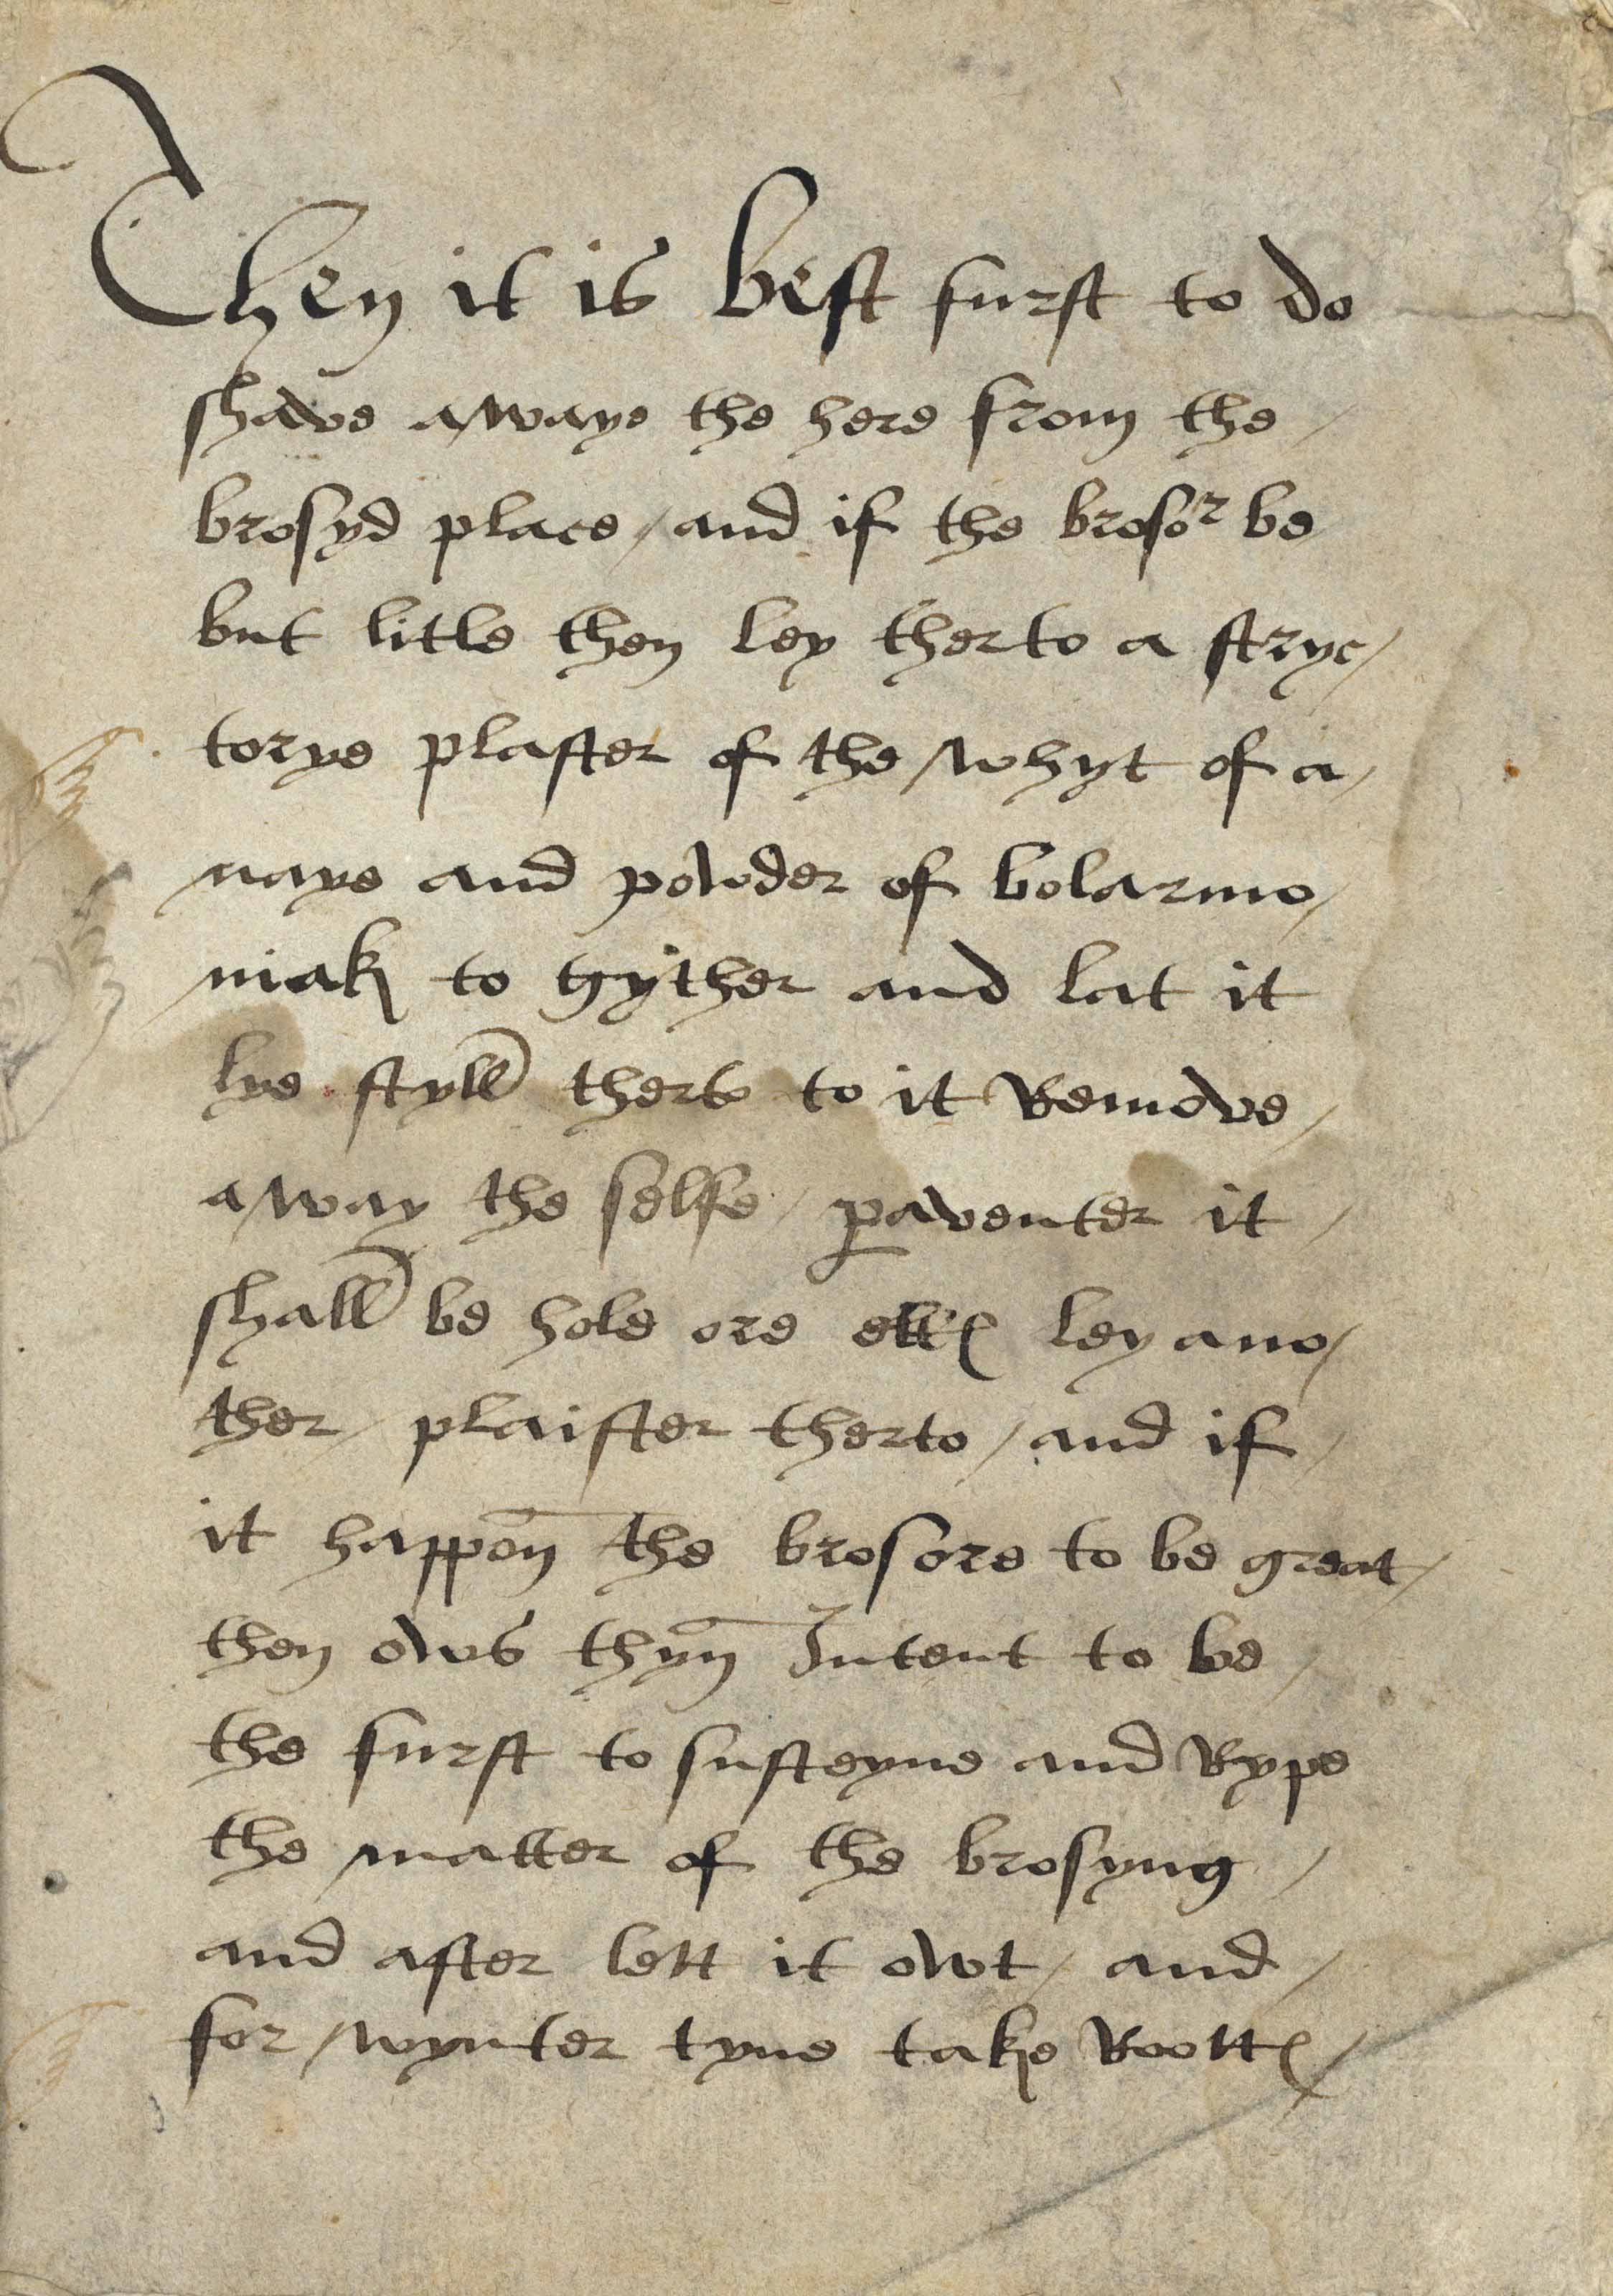 Then it is best furst to do
shave awaye the here from the /
brosyd place / and if the brosor be
but litle then ley therto a stryc/
torye plaster of the whyt of a /
naye and powder of bolarmo/
niak to gyther and lat it
lye styll therto to it Remove /
away the selfe / paventer it /
shall be hole ore elles ley ano/
ther / plaister therto / and if /
it happen the brosore to be great /
then ows thyn Intent to be /
the furst to susteyne and Rype
the matter of the brosyng /
and after lett it owt / and /
for wynter tyme take Rootes /